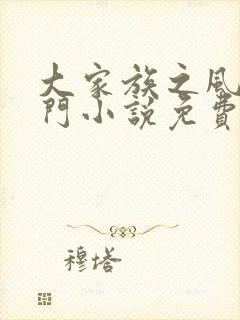 大家族之風
門小說免費
穆塔